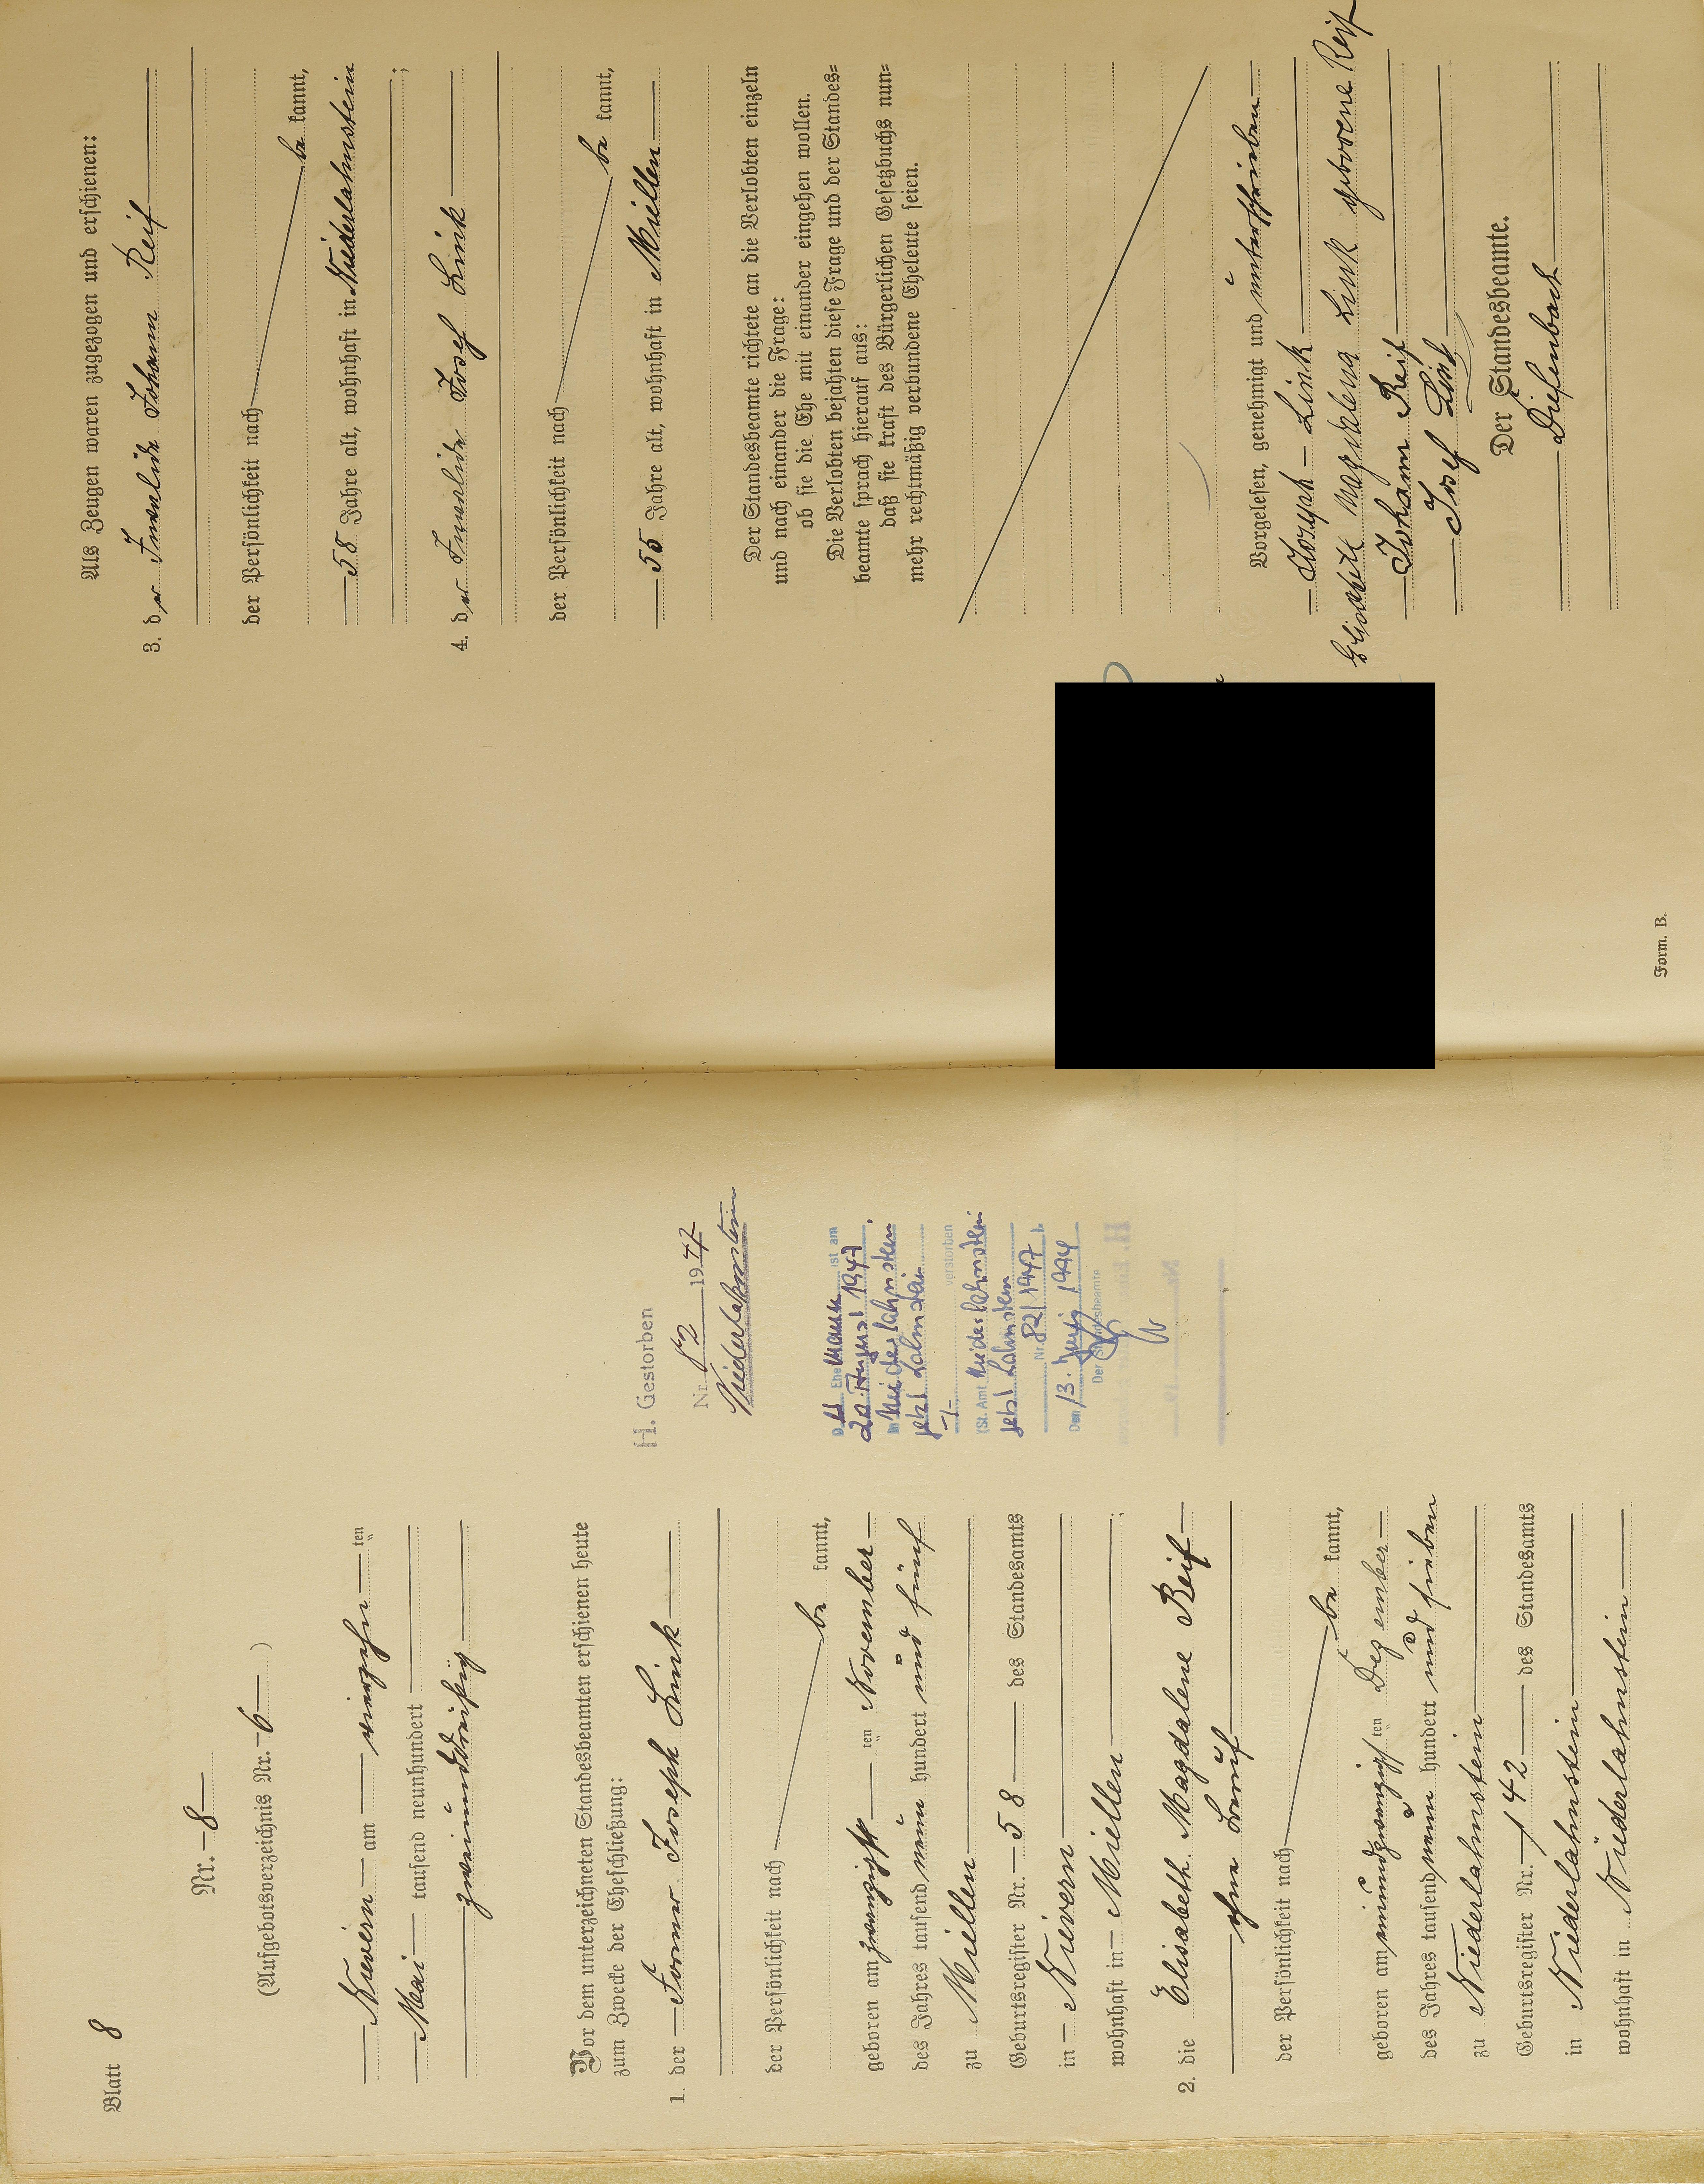 Blatt 8
Nr. 8
(Aufgebotsverzeichnis Nr. 6)
Nievern am vierzehn ten
Mai tausend neunhundert
zweiunddreißig
Vor dem unterzeichneten Standesbeamten erschienen heute
zum Zwecke der Eheschließung:
1. der Former Joseph Link
der Persönlichkeit nach
be kannt,
geboren am zwanzigst ten November
des Jahres tausend neun hundert und fünf
zu Miellen
Geburtsregister Nr. 58 des Standesamts
in Nievern
wohnhaft in Miellen
2. die Elisabeth Magdalene Reif
ohne Beruf
der Persönlichkeit nach
be kannt,
geboren am neunundzwanzigst ten Dezember
des Jahres tausend neun hundert und sieben
zu Niederlahnstein
Geburtsregister Nr. 142 des Standesamts
in Niederlahnstein
wohnhaft in Niederlahnstein
H. Gestorben
Nr. 82 1947
Niederlahnstein
D er Ehe mann ist am
20. August 1947
in Niederlahnstein
jetzt Lahnstein
verstorben
(St. Amt Niederlahnstein
jetzt Lahnstein
Nr. 82/1947)
Den 13. 1994
Der Standesbeamte
Als Zeugen waren zugezogen und erschienen:
3. der Invalide Johann Reif
der Persönlichkeit nach
be kannt,
58 Jahre alt, wohnhaft in Niederlahnstein
;
4. der Invalide Josef Link
der Persönlichkeit nach
be kannt,
55 Jahre alt, wohnhaft in Miellen
Der Standesbeamte richtete an die Verlobten einzeln
und nach einander die Frage:
ob sie die Ehe mit einander eingehen wollen.
Die Verlobten bejahten diese Frage und der Standes-
beamte sprach hierauf aus:
daß sie kraft des Bürgerlichen Gesetzbuchs nun-
mehr rechtmäßig verbundene Eheleute seien.
Vorgelesen, genehmigt und unterschrieben
Joseph Link
Elisabeth Magdalena Link geborene Reif
Johann Reif
Josef Link
Der Standesbeamte.
Diefenbach
Form. B.